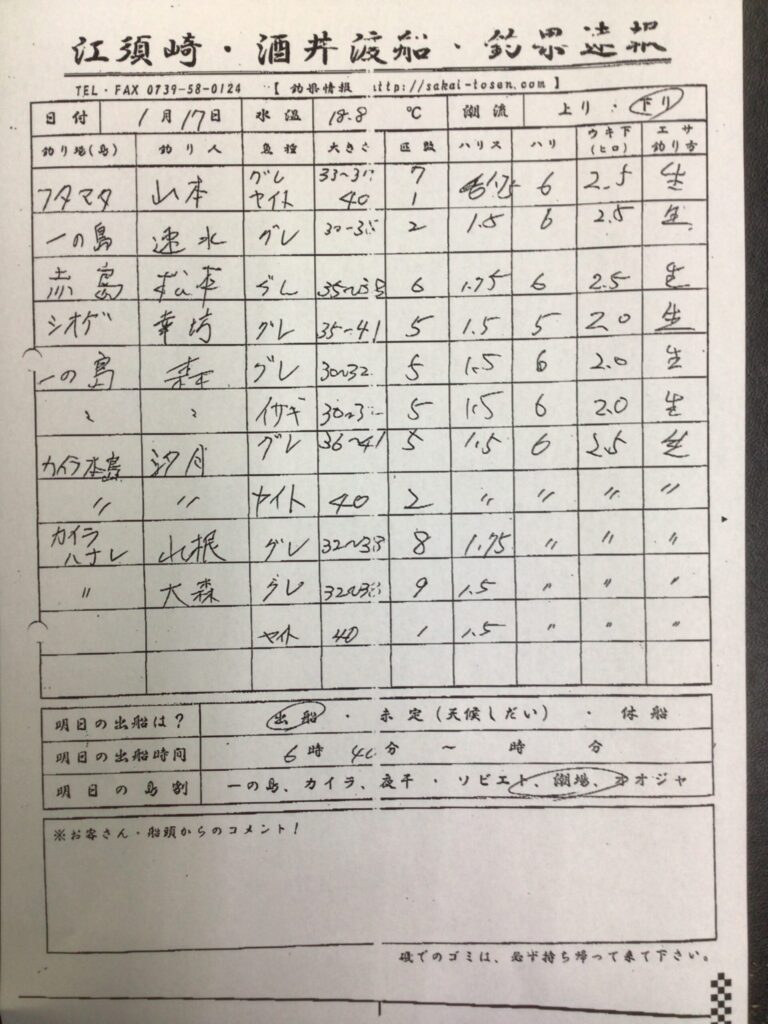 江須崎・酒井渡船・釣果速報
TEL・FAX 0739-58-0124 【 釣果情報 http://sakai-tosen.com 】
日付 1月17日 水温 18.8 ℃ 潮流 上り : 下り
釣り場(島) 釣り人 魚種 大きさ 匹数 ハリス ハリ ウキ下(ヒロ) エサ釣り方
フタマタ 山本 グレ 7 1.75 6 2.5 生
ヤイト 40 1
一の島 速水 グレ 2 1.5 6 2.5 生
赤島 松本 グレ 6 1.75 6 2.5 生
シオゲ 幸崎 グレ 35~41 5 1.5 5 2.0 生
一の島 森 グレ 30~32 5 1.5 6 2.0 生
〃 〃 イサギ 5 1.5 6 2.0 生
カイラ本島 汐月 グレ 36~41 5 1.5 6 2.5 生
〃 〃 ヤイト 40 2 〃 〃 〃 〃
カイラハナレ 山根 グレ 32~38 8 1.75 〃 〃 〃
〃 大森 グレ 32~38 9 1.5 〃 〃 〃
ヤイト 40 1 1.5 〃 〃 〃
明日の出船は? 出船 ・ 未定(天候しだい) ・ 休船
明日の出船時間 6時 40分 ~ 時 分
明日の島割 一の島、カイラ、夜干・ソビエト、潮場、オオジャ
※お客さん・船頭からのコメント!
磯でのゴミは、必ず持ち帰って来て下さい。